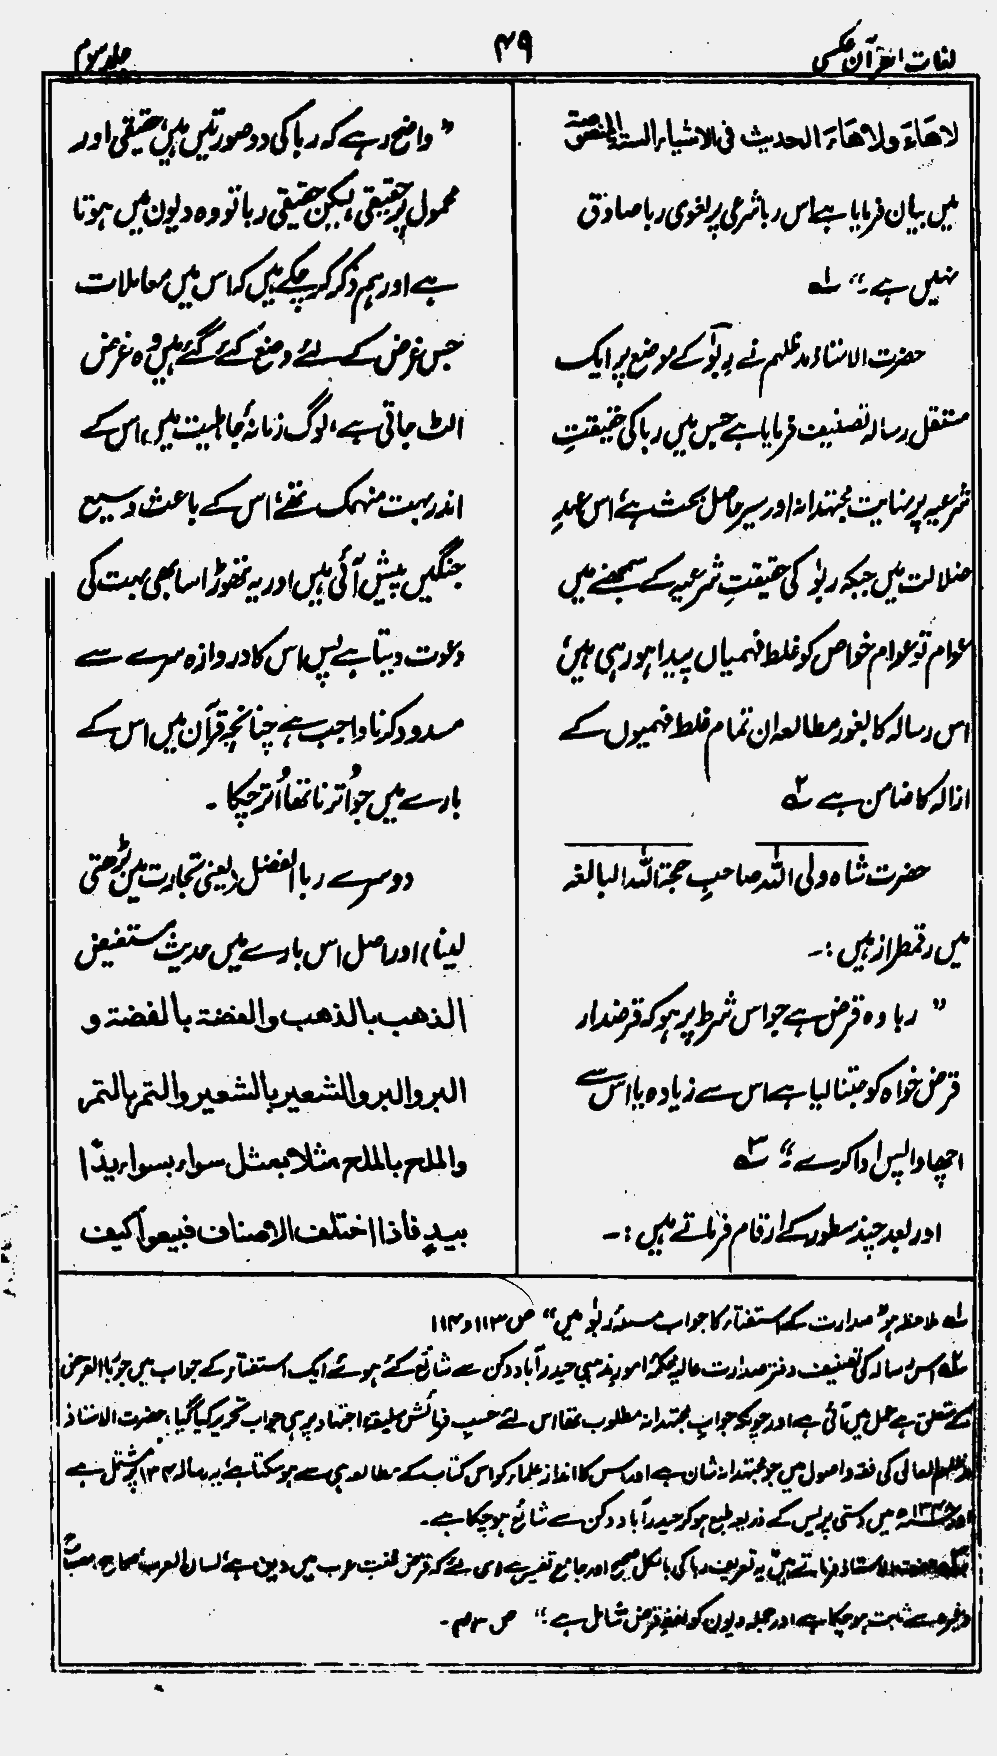 لغات القرآن عکسی
۴۹
جلد سوم
لاھاءَ ولاھاءَ الحدیث فی الاشیاء الستۃ المنصوصۃ
میں بیان فرمایا ہے اس ربا شرعی پر لغوی ربا صادق
نہیں ہے ۔" لہ
حضرت الاستاذ مدظلہم نے ربوٰ کے موضع پر ایک
مستقل رسالہ تصنیف فرمایا ہے جس میں ربا کی حقیقتِ
شرعیہ پر نہایت مجتہدانہ اور سیر حاصل بحث ہے، اس عہدِ
ضلالت میں جبکہ ربوٰ کی حقیقتِ شرعیہ کے سمجھنے میں
عوام تو عوام خواص کو غلط فہمیاں پیدا ہو رہی ہیں،
اس رسالہ کا بغور مطالعہ ان تمام غلط فہمیوں کے
ازالہ کا ضامن ہے ۲ہ
حضرت شاہ ولی اللہ صاحبِ حجۃ اللہ البالغہ
میں رقمطراز ہیں :۔
" ربا وہ قرض ہے جو اس شرط پر ہو کہ قرضدار
قرض خواہ کو جتنا لیا ہے اس سے زیادہ یا اس سے
اچھا واپس ادا کرے ۔" ۳ہ
اور بعد چند سطور کے ارقام فرماتے ہیں :۔
" واضح رہے کہ ربا کی دو صورتیں ہیں، حقیقی اور
محمول بر حقیقی، لیکن حقیقی ربا تو وہ دیون میں ہوتا
ہے اور ہم ذکر کر چکے ہیں کہ اس میں معاملات
جس غرض کے لئے وضع کئے گئے ہیں وہ غرض
الٹ جاتی ہے، لوگ زمانۂ جاہلیت میں، اس کے
اندر بہت منہمک تھے، اس کے باعث وسیع
جنگیں پیش آئی ہیں اور یہ تھوڑا سا بھی بہت کی
دعوت دیتا ہے پس اس کا دروازہ سرے سے
مسدود کرنا واجب ہے چنانچہ قرآن میں اس کے
بارے میں جو اُترنا تھا اُتر چکا ۔
دوسرے ربا الفضل (یعنی تجارت میں بڑھتی
لینا) اور اصل اس بارے میں حدیث مستفیض
الذھب بالذھب والفضۃ بالفضۃ و
البر والبر والشعیر بالشعیر والتمر بالتمر
والملح بالملح مثلا بمثل سواء بسواء یدًا
بیدٍ فأذا اختلف الاصناف فبیعوا کیف
لہ ملاحظہ ہو" صدارت کے استفتاء کا جواب مسئلہ ربوٰ میں" ص ۱۱۳ و ۱۱۴
۲ہ اس رسالہ کی تصنیف دفتر صدارت عالیہ محکمۂ امور مذہبی حیدرآباد دکن سے شائع کئے ہوئے ایک استفتاء کے جواب میں جو ربا القرض
کے متعلق ہے عمل میں آئی ہے اور چونکہ جواب مجتہدانہ مطلوب تھا اس لئے حسب فرمائش سلیقہ اجتہاد پر ہی جواب تحریر کیا گیا، حضرت الاستاذ
مدظلہ العالی کی فقہ و اصول میں جو مجتہدانہ شان ہے اور اس کا انداز علماء کو اس کتاب کے مطالعہ ہی سے ہو سکتا ہے، یہ رسالہ ۱۳۴ پر مشتمل ہے
اور ۱۳۴۸ھ میں دستی پریس کے ذریعہ طبع ہو کر حیدرآباد دکن سے شائع ہو چکا ہے ۔
حضرت الاستاذ فرماتے ہیں، یہ تعریف ربا کی بالکل صحیح اور جامع تفسیر ہے اسی لئے کہ قرض لغت عرب میں دین ہے، لسان العرب، صحاح،
وغیرہ سے ثابت ہو چکا ہے اور جملہ دیون کو لفظ قرض شامل ہے ۔" ص